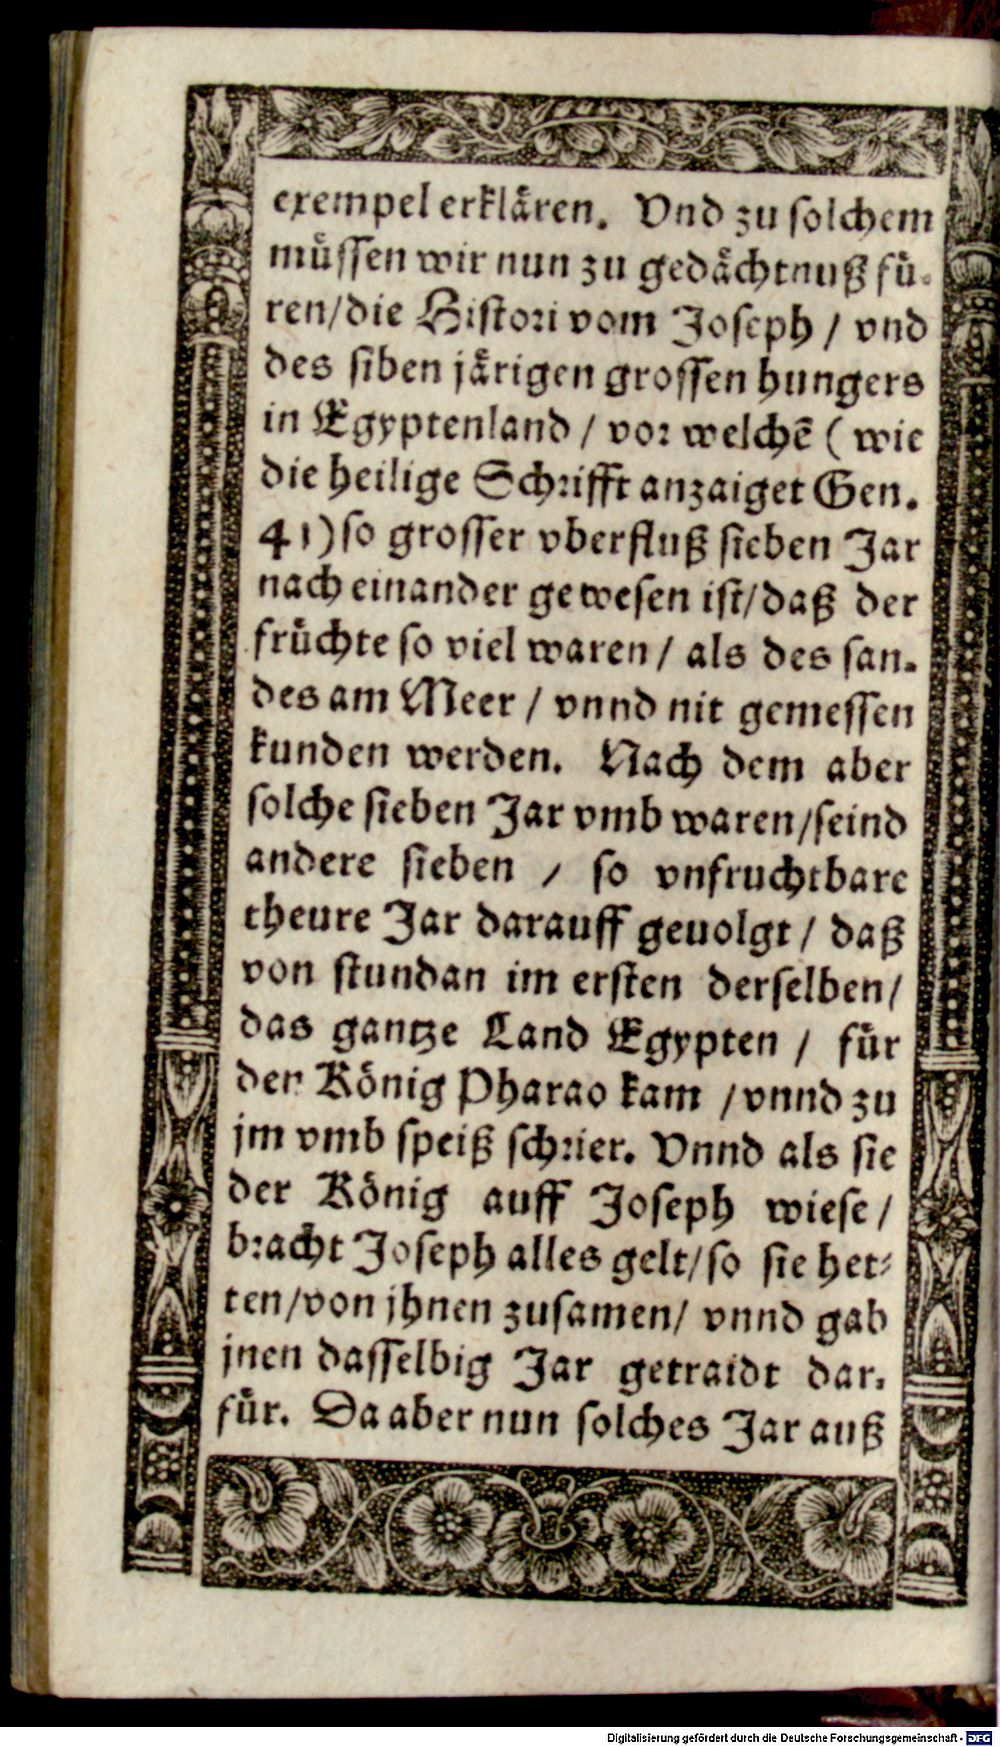 exempel erklären. Vnd zu solchem
müssen wir nun zu gedächtnuß fü-
ren/die Histori vom Joseph / vnd
des siben järigen grossen hungers
in Egyptenland / vor welchē ( wie
die heilige Schrifft anzaiget Gen.
41) so grosser vberfluß sieben Jar
nach einander gewesen ist/daß der
früchte so viel waren / als des san-
des am Meer / vnnd nit gemessen
kunden werden. Nach dem aber
solche sieben Jar vmb waren/seind
andere sieben / so vnfruchtbare
theure Jar darauff geuolgt / daß
von stundan im ersten derselben/
das gantze Land Egypten / für
den König Pharao kam / vnnd zu
jm vmb speiß schrier. Vnnd als sie
der König auff Joseph wiese/
bracht Joseph alles gelt/so sie het-
ten/von jhnen zusamen/ vnnd gab
jnen dasselbig Jar getraidt dar-
für. Da aber nun solches Jar auß
Digitalisierung gefördert durch die Deutsche Forschungsgemeinschaft - DFG